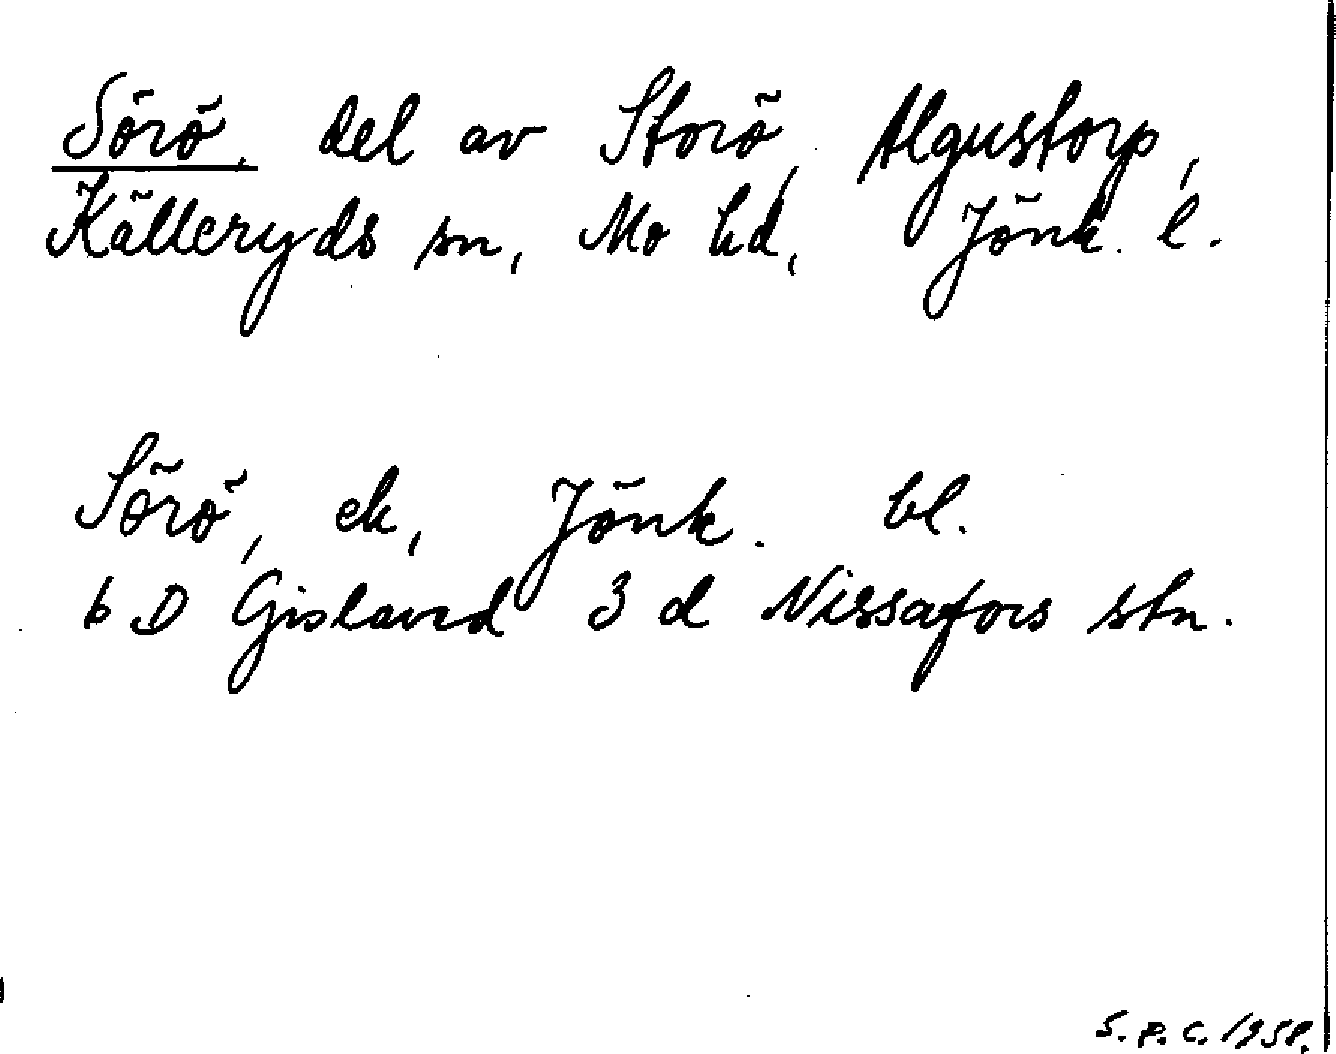 Sörö, del av Storö, Algustorp,
Källeryds sn, Mo hd, Jönk. l.
Sörö, ek, Jönk. bl.
6 D Gislaved 3 d Nissafors stn.
S.P.C. 1958.